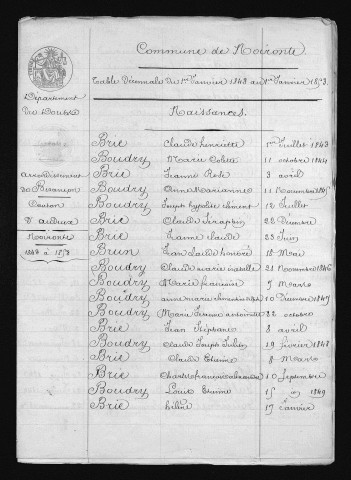 Commune de Noironte
Table Décennale du 1er Janvier 1843 au 1er Janvier 1853.
Département
du Doubs
Naissances.
arrondissement
de Besançon
Canton
d'audeux
Noironte
1843 à 1853
Brie Claude henriette 1er Juillet 1843
Boudry Marie Colette 11 octobre 1844
Brie Jeanne Rose 3 avril
Boudry Anna Marianne 11 Novembre 1845
Boudry Joseph hypolite Clément 12 Juillet
Brie Claude Séraphin 22 Décembre
Brie Jeanne Claude 23 Juin
Brun Jean Claude honoré 18 Mai
Boudry Claude Marie 21 Novembre 1846
Boudry Marie françoise 9 Mars
Boudry anne marie 10 Décembre 1847
Boudry Marie Jeanne antoinette 22 octobre
Brie Jean Stéphane 8 avril
Boudry Claude Joseph Julien 29 février 1848
Brie Claude Etienne 8 Mars
Brie Charles françois 10 Septembre
Boudry Louis Etienne 15 1849
Brie hélène 17 Janvier